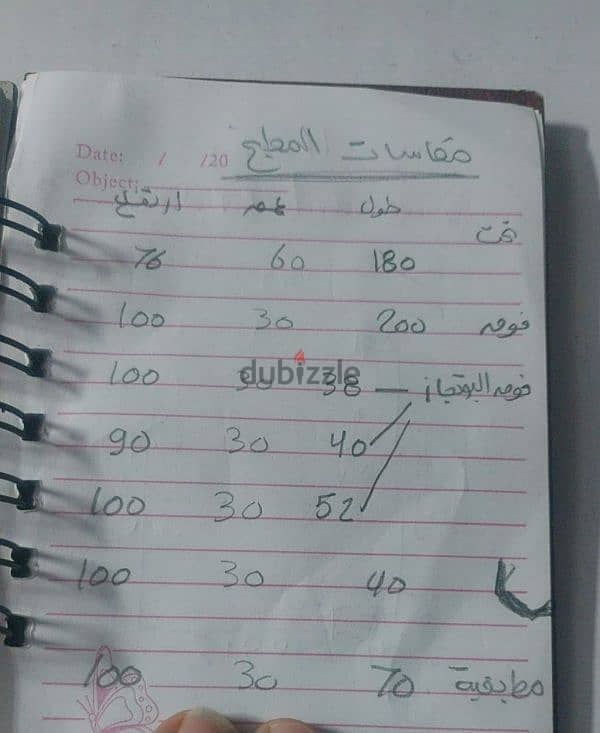 مقاسات المطبخ
Date: / /20
Object:
طول عمق ارتفاع
تحت
180 60 76
فوقه 200 30 100
فوقه البوتجاز — 38 30 100
dubizzle
40 30 90
52 30 100
40 30 100
مطبقية 70 30 100